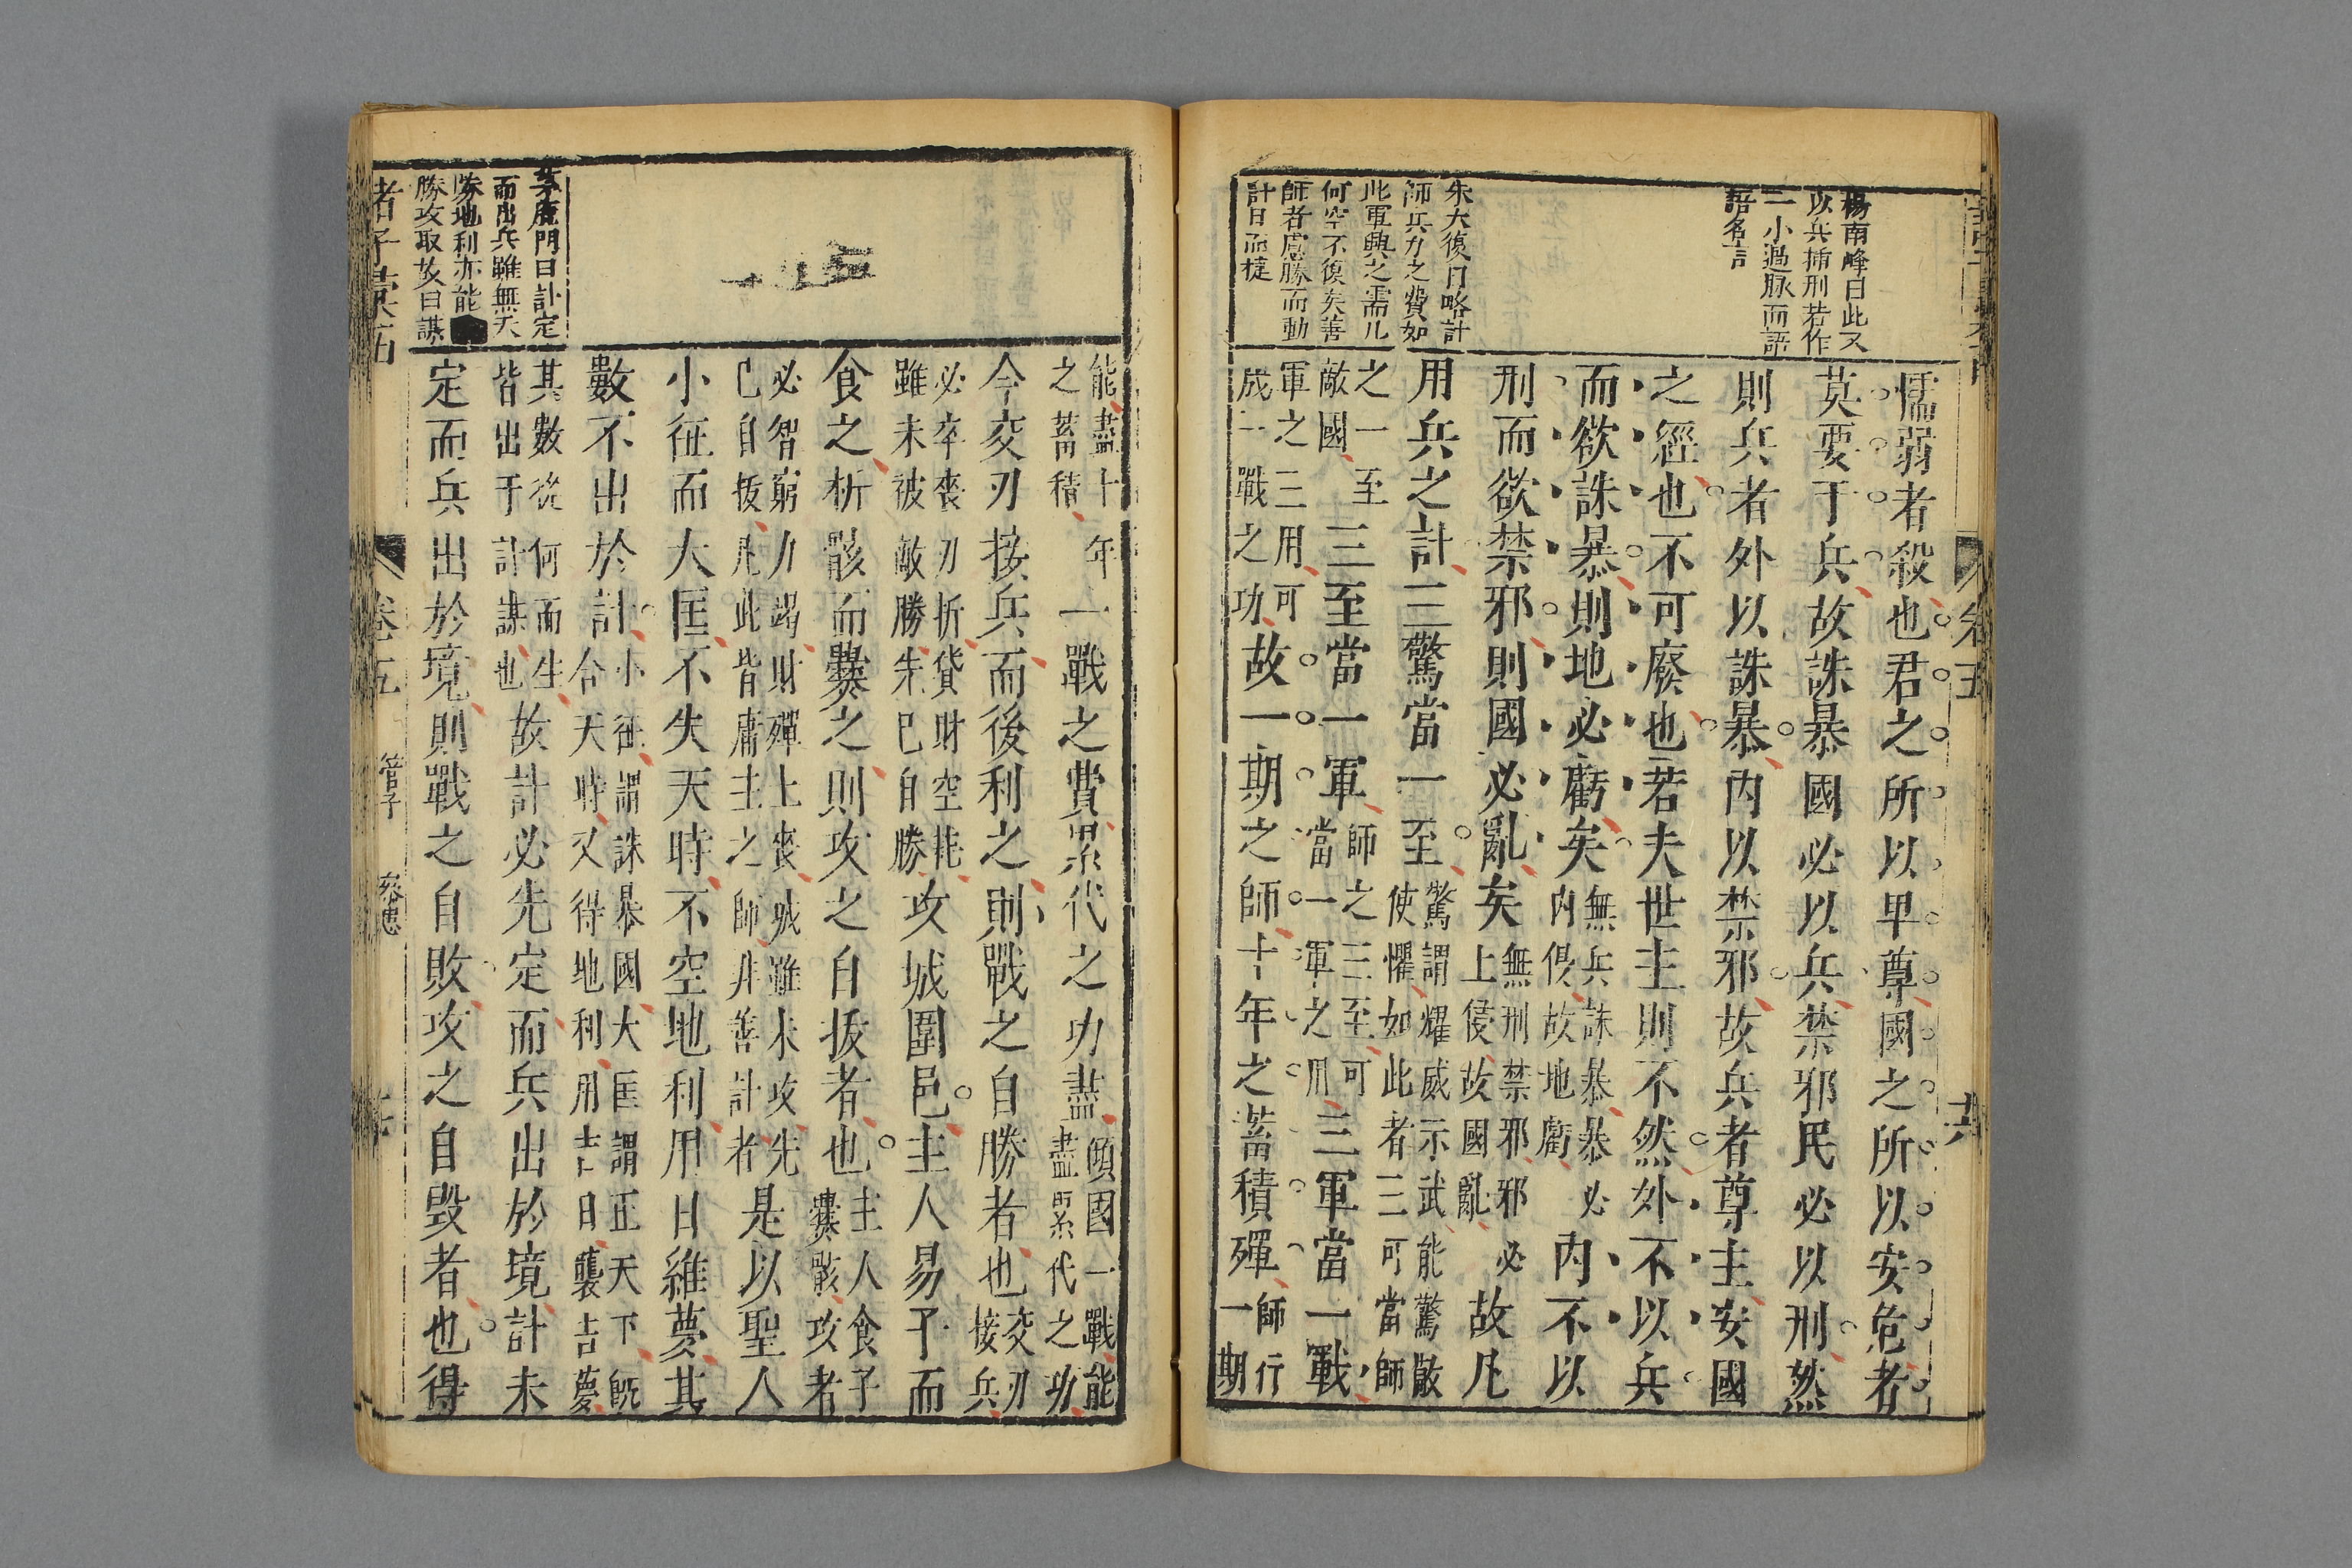 卷五
楊南峰曰此又
以兵插刑若作
一小過脉而語
語名言
朱大復曰略計
師兵力之費如
此軍興之需几
何空不復矣善
師者慮勝而動
計日而㨗
懦弱者殺也君之所以卑尊國之所以安危者
莫要于兵故誅暴國必以兵禁邪民必以刑然
則兵者外以誅暴內以禁邪故兵者尊主安國
之經也不可廢也若夫世主則不然外不以兵
而欲誅暴則地必虧矣無兵誅暴暴必內侵故地虧內不以
刑而欲禁邪則國必亂矣無刑禁邪邪必上侵故國亂故凡
用兵之計三驚當一至驚謂耀威示武能驚敵使懼如此者三可當師
之一至敵國三至當一軍師之三至可當一軍之用三軍當一戰
軍之三用可成一戰之功故一期之師十年之蓄積殫師行一期
茅鹿門曰計定
而出兵雖無天
勝地利亦能
勝攻取故曰謀
能盡十年之蓄積一戰之費累代之功盡傾國一戰能盡累代之功
今交刃接兵而後利之則戰之自勝者也交刃接兵
必卒喪刃折貨財空耗雖未被敵勝先已自勝攻城圍邑主人易子而
食之析骸而爨之則攻之自拔者也主人食子爨骸攻者
必智窮力竭財殫士喪城雖未攻先已自拔凡此皆庸主之師非善計者是以聖人
小征而大匡不失天時不空地利用日維夢其
數不出於計小征謂誅暴國大匡謂正天下旣合天時又得地利用吉日襲吉夢
其數從何而生皆出于計謀也故計必先定而兵出於境計未
定而兵出於境則戰之自敗攻之自毀者也得
諸子彙
卷五 管子 參患